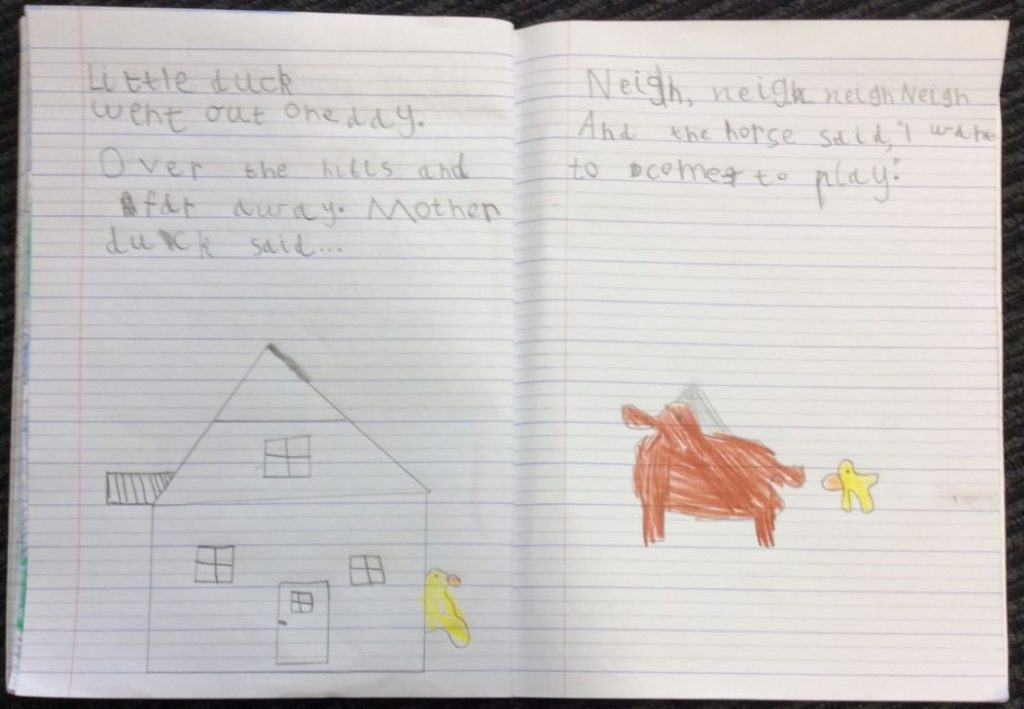 Little duck
went out one day.
Over the hills and
far away. Mother
duck said...
Neigh, neigh neigh Neigh
And the horse said, "I want
to come to play."